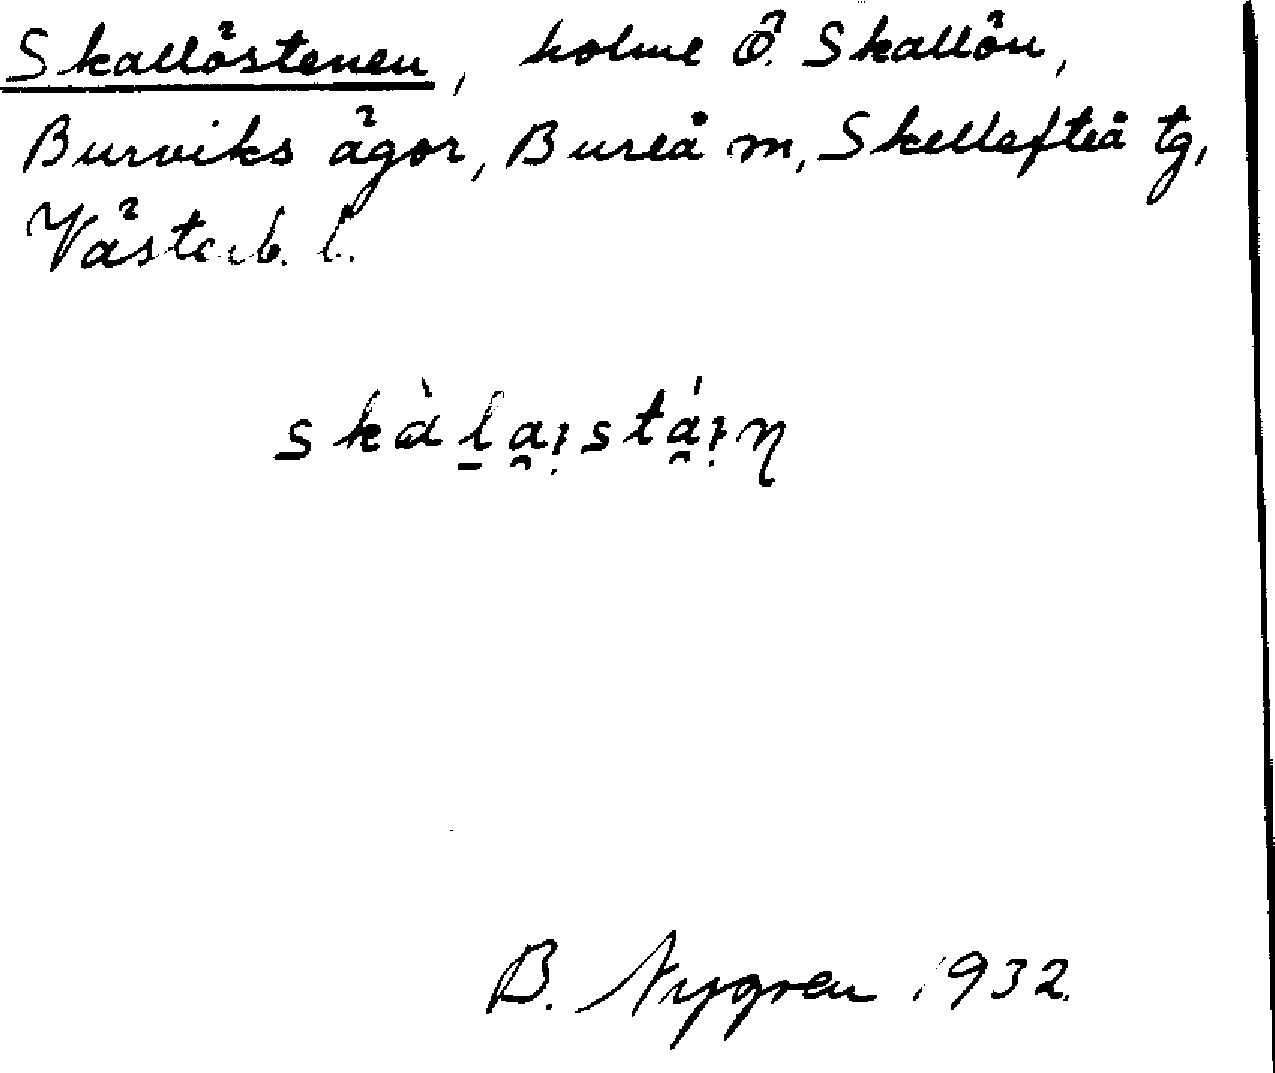 Skallöstenen, holme Ö. Skallön,
Burviks ägor, Bureå m, Skellefteå tg,
Västerb. l.
skàl̠a̯ı̣stá̯ı̣n
B. Nygren 1932.